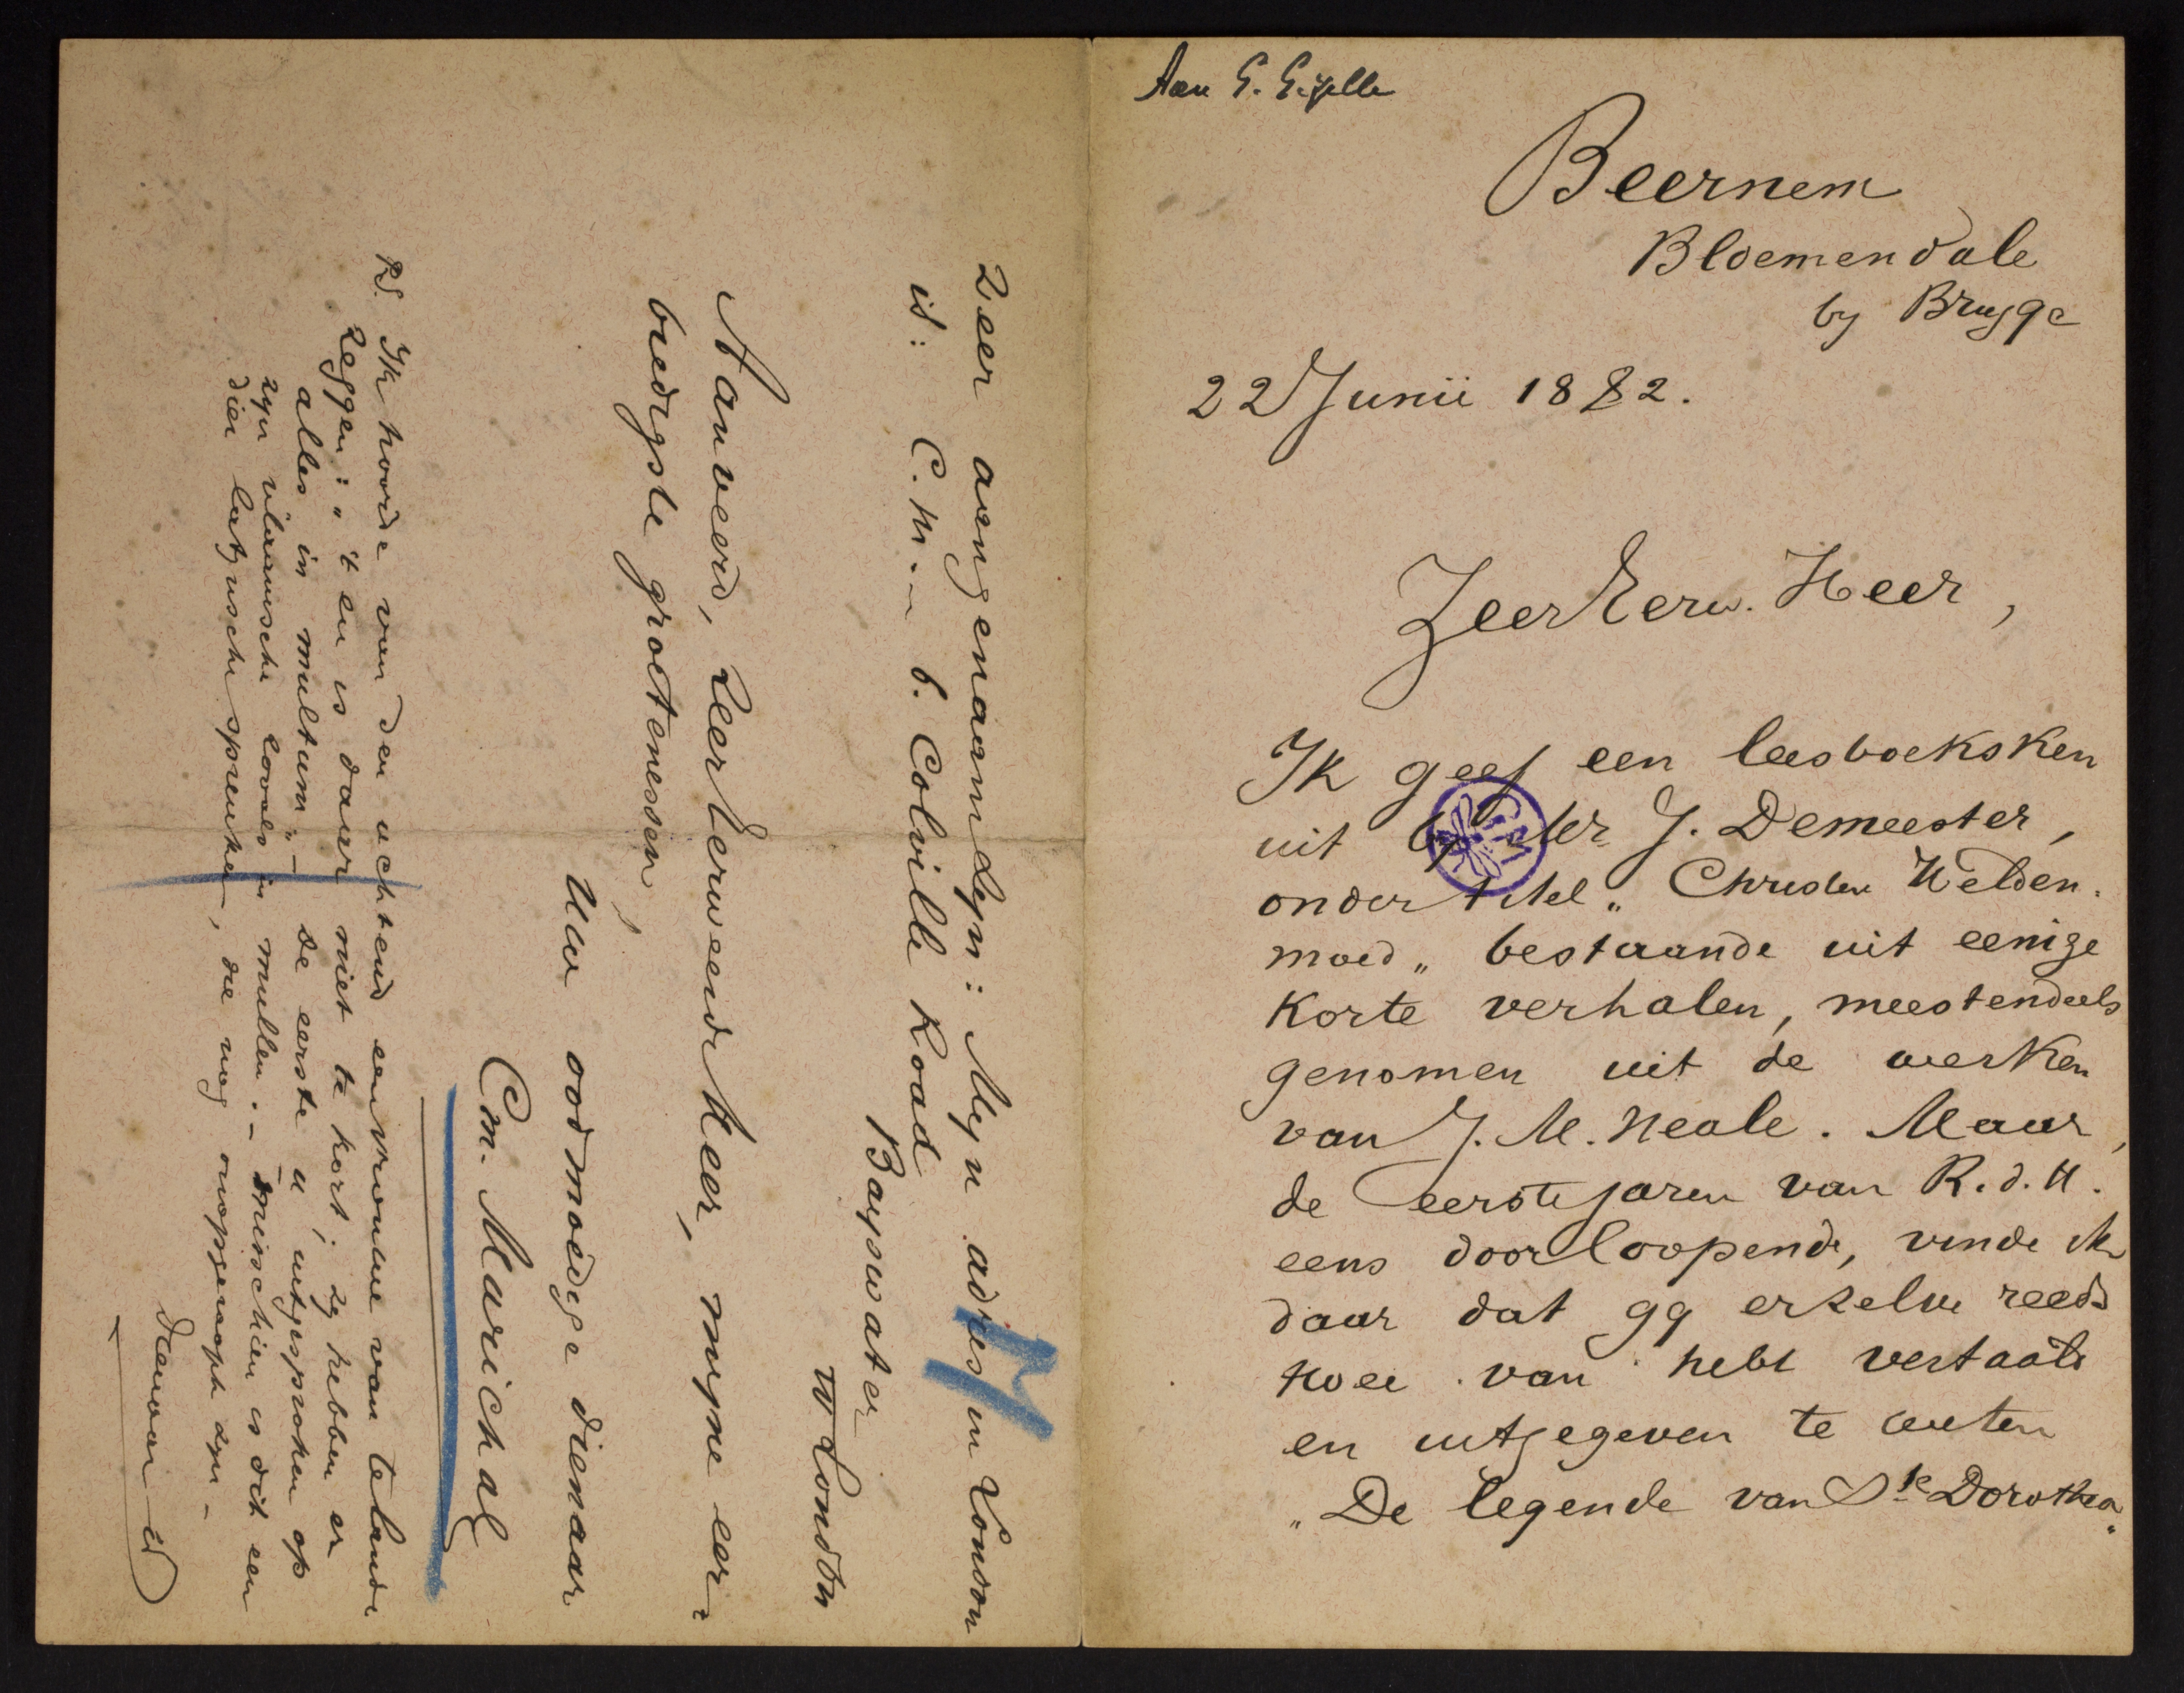 Aan G. Gezelle
Beernem
Bloemendale
by Brugge
22 Junii 1882.
Zeer Eerw. Heer,
Ik geef een leesboeksken
uit by Mr J. Demeester,
onder titel „Christen Helden-
moed„ bestaande uit eenige
korte verhalen, meestendeels
genomen uit de werken
van J. M. Neale. Maar,
de eerste jaren van R. d. H.
eens doorloopende, vinde ik
daar dat gy er zelve reeds
twee van hebt vertaald
en uitgegeven te weten
„De legende van Ste Dorothea„
zeer aangenaam zyn: Myn adres in London
is: C. M. 6. Colville Road
Bayswater
W London
Aanveerd, Zeer Eerweerde Heer, myne eer-
biedigste groetenessen,
Uw oodmoedige dienaar
Em. Marichal
P.S. Ik hoorde van den uchtend een vrouwe van te lande
zeggen: „'t en is daar niet te kort; zy hebben er
alles in multum„ — de eerste u uitgesproken op
zyn vlaamsche lowels in mullen. — misschien is dit een
dier latynsche spreuken, die nog onopgeraapt zyn —